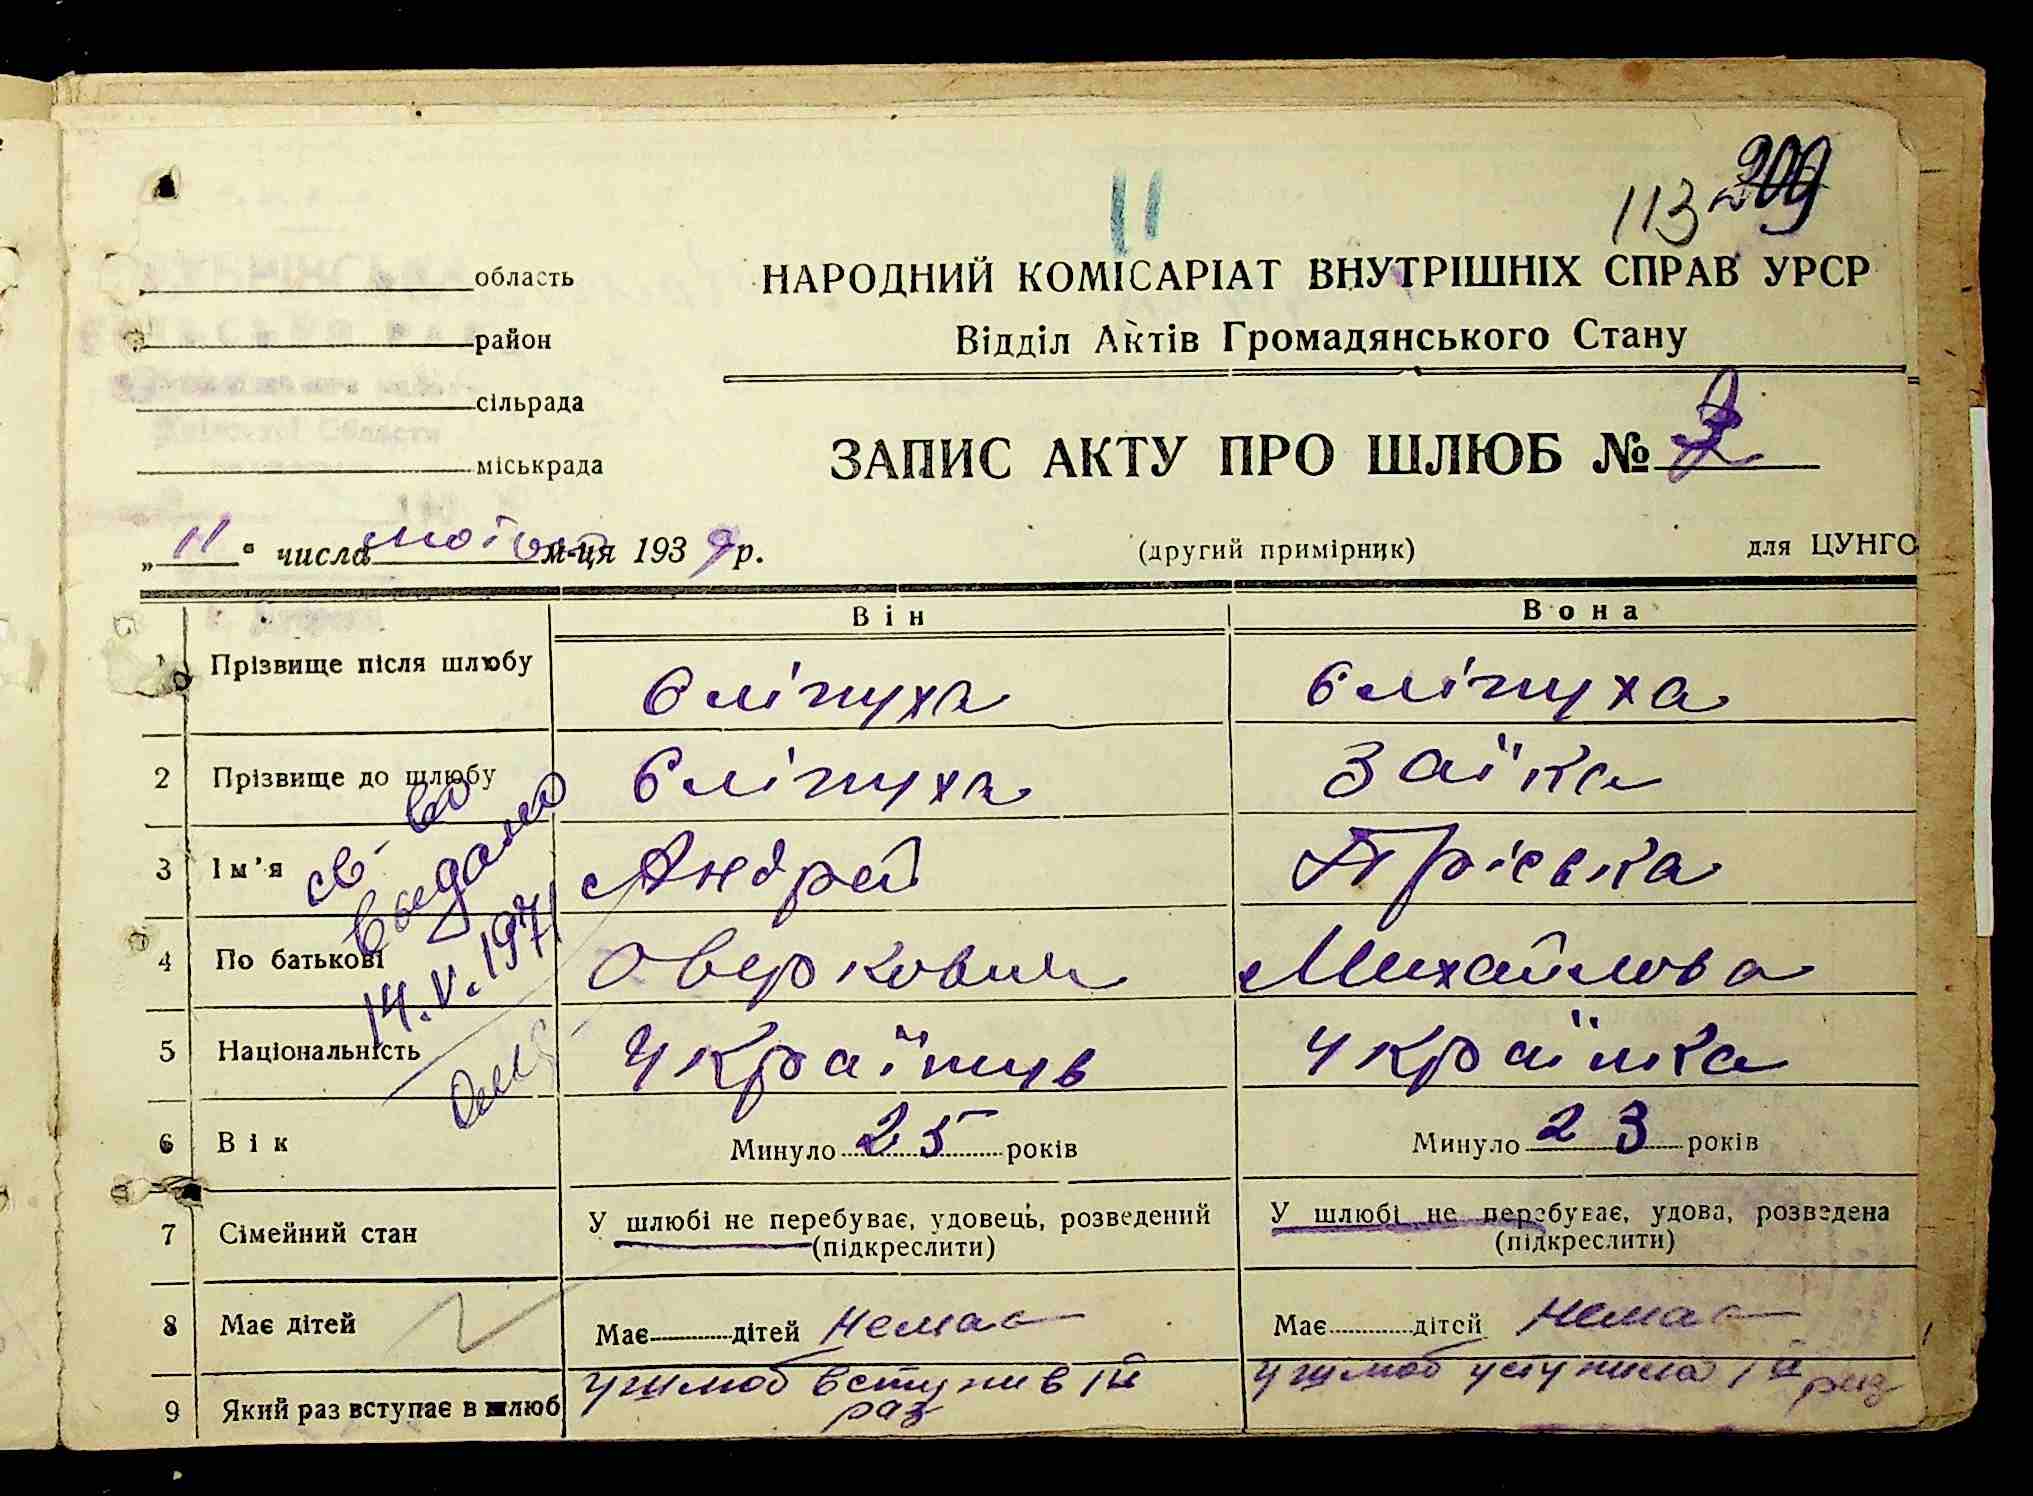 11
113 209
область
район
сільрада
міськрада
НАРОДНИЙ КОМІСАРІАТ ВНУТРІШНІХ СПРАВ УРСР
Відділ Актів Громадянського Стану
ЗАПИС АКТУ ПРО ШЛЮБ №
„11“ числа лютого м-ця 1939 р.
(другий примірник)
для ЦУНГО
Він Вона
1 Прізвище після шлюбу Сліпуха Сліпуха
2 Прізвище до шлюбу Сліпуха Заїка
3 Ім’я Андрей Пріська
4 По батькові Оверкович Михайлова
5 Національність Українув Українка
6 Вік Минуло 25 років Минуло 23 років
7 Сімейний стан У шлюбі не перебуває, удовець, розведений У шлюбі не перебуває, удова, розведена
(підкреслити) (підкреслити)
8 Має дітей Має дітей немає Має дітей немає
9 Який раз вступає в шлюб у шлюб вступив 1й у шлюб уступила 1й раз
раз
св-во
выдано
14.V.1971